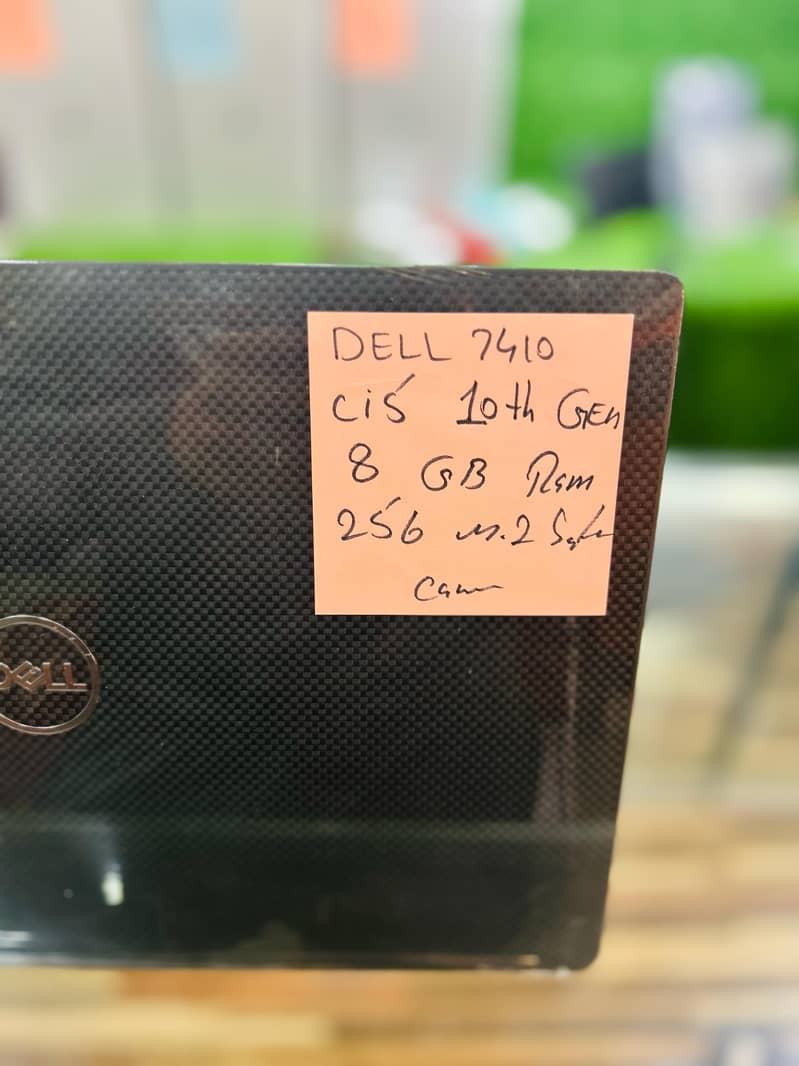 DELL 7410
Ci5 10th GEn
8 GB Ram
256 M.2
DELL